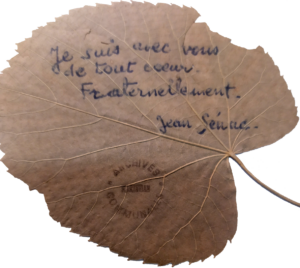 Je suis avec vous
de tout cœur.
Fraternellement.
Jean Sénac.
ARCHIVES